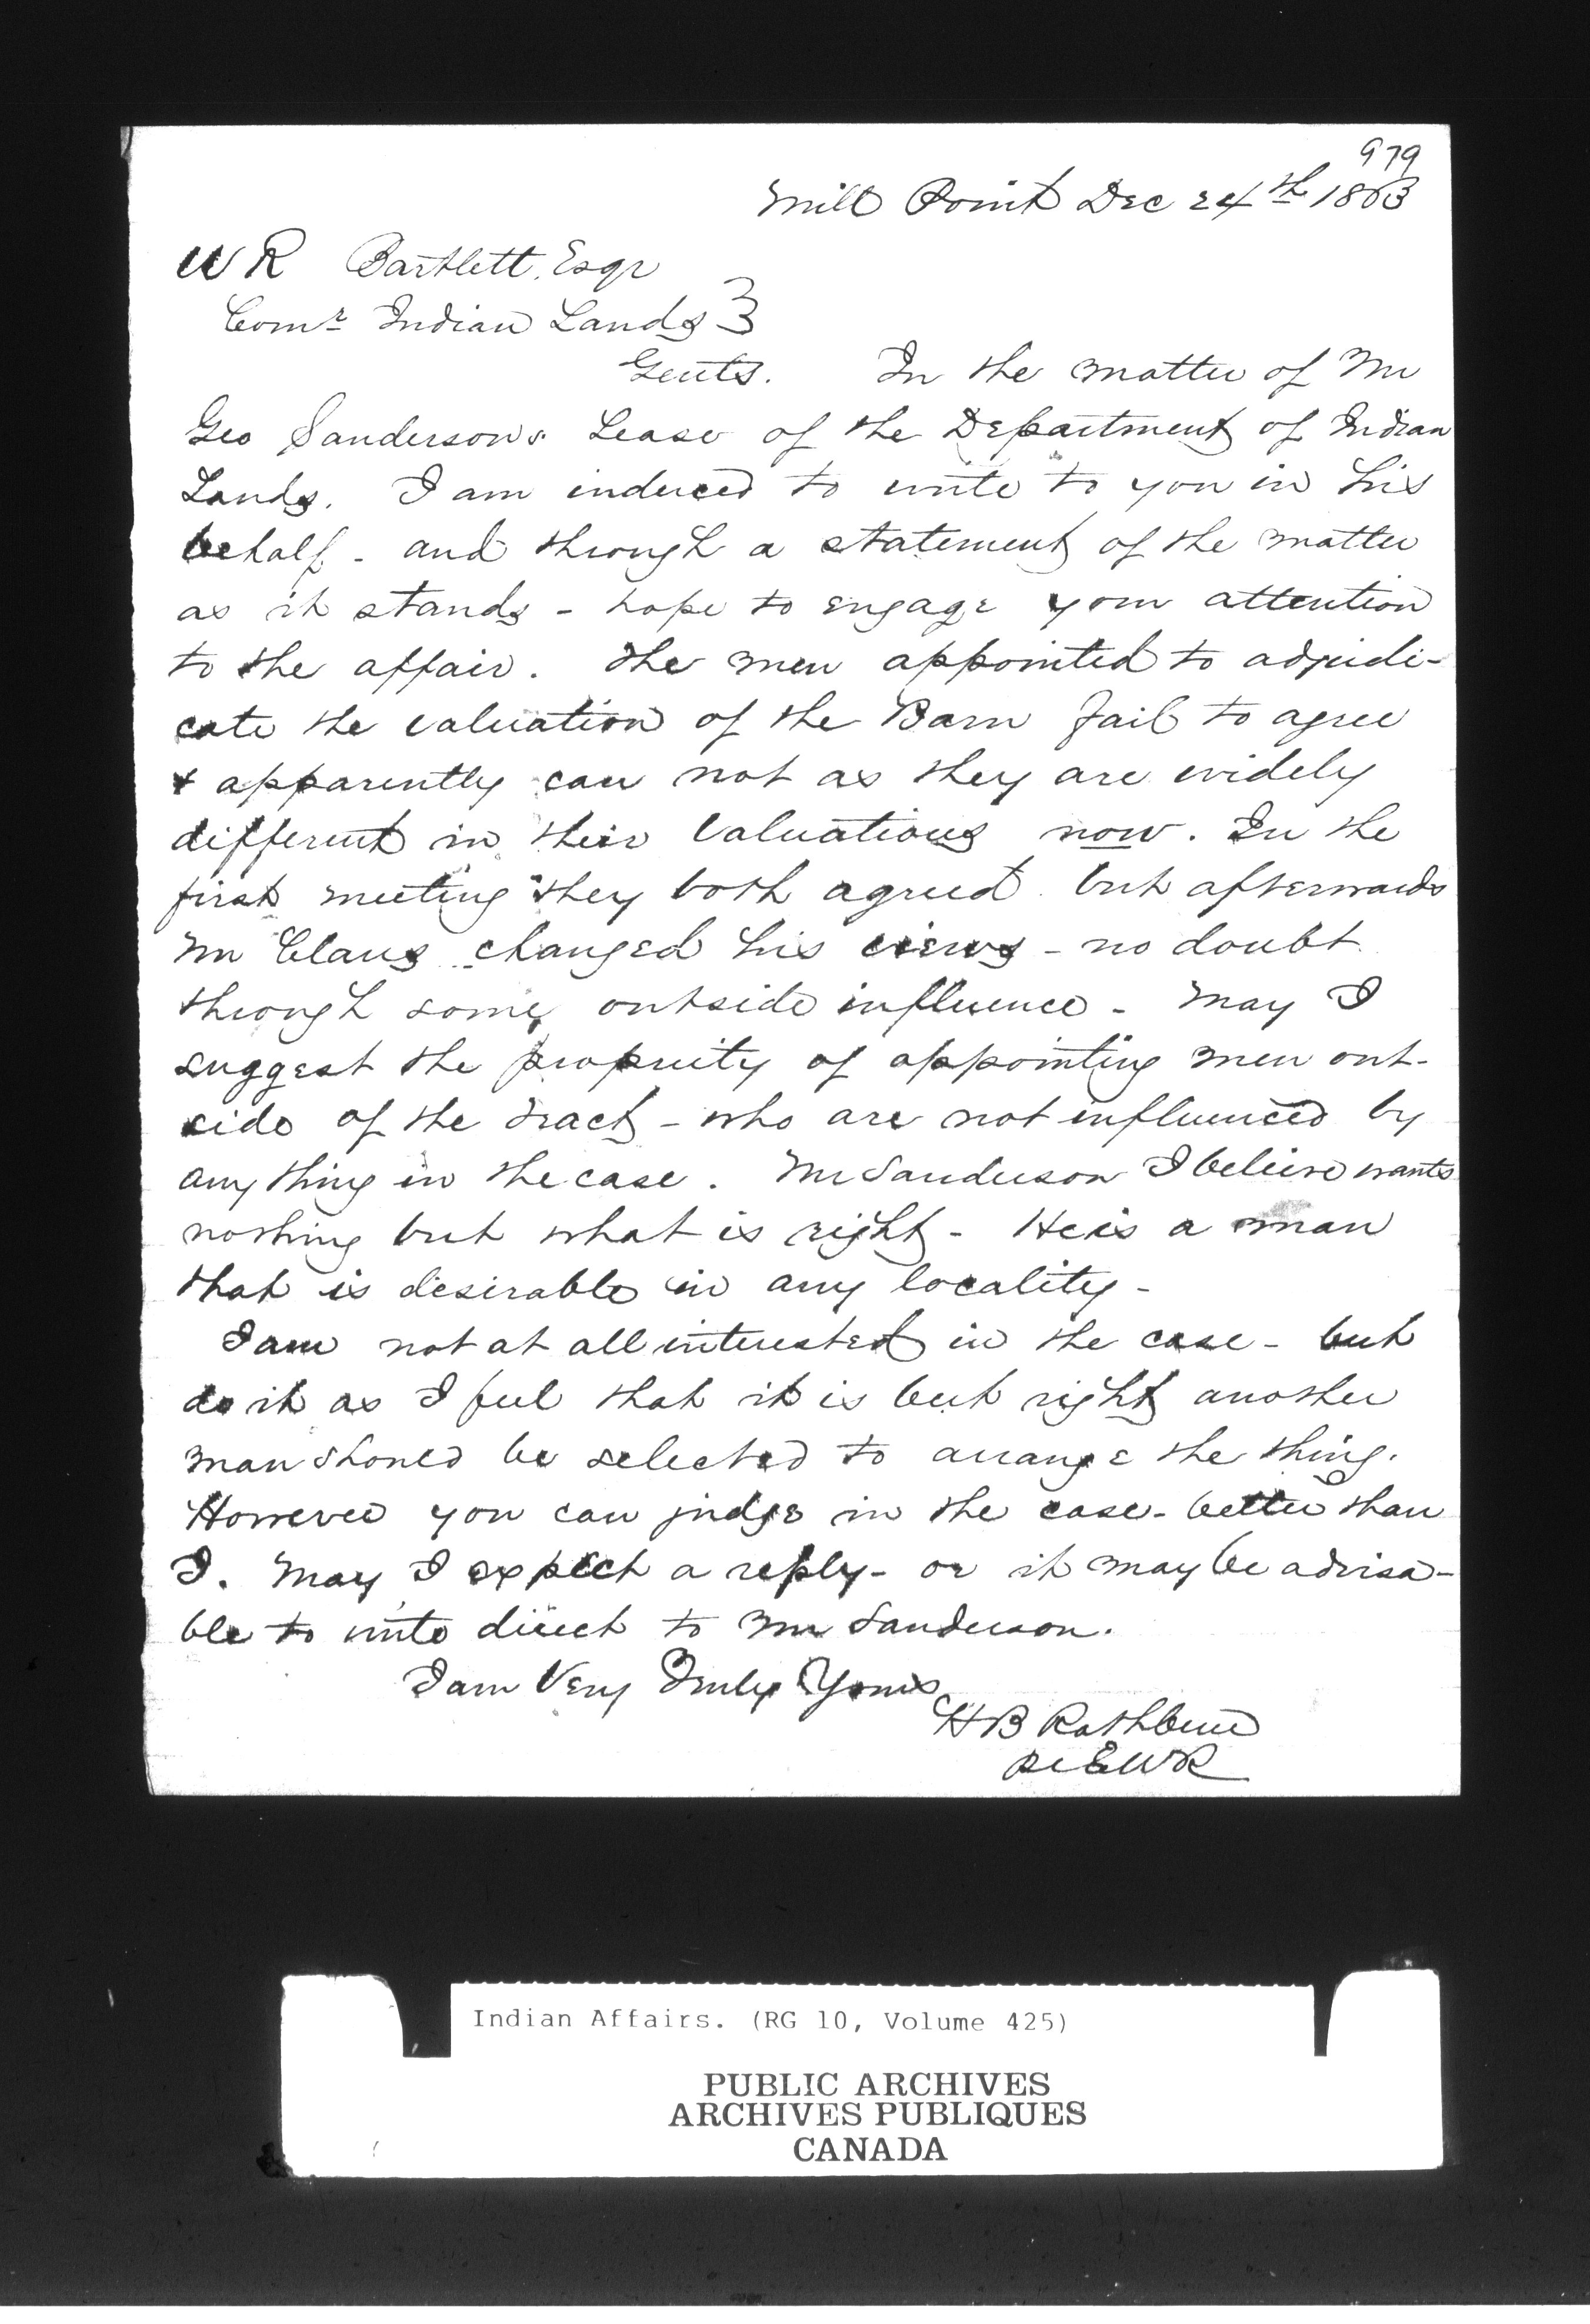 979
Mill Point Dec 24th 1863
W R Bartlett. Esqr
Comr Indian Lands }
Gents. In the matter of Mr
Geo Sandersons Lease of the Department of Indian
Lands. I am induced to write to you in his
behalf - and through a statement of the matter
as it stands - hope to engage your attention
to the affair. The men appointed to adjudi-
cate the valuation of the Barn fail to agree
& apparently can not as they are widely
different in their valuations now. In the
first meeting they both agreed but afterwards
Mr Claus changed his views - no doubt
through some outside influence - May I
suggest the propriety of appointing men out-
side of the tract - who are not influenced by
any thing in the case. Mr Sanderson I believe wants
nothing but what is right - He is a man
that is desirable in any locality -
I am not at all interested in the case - but
do it as I feel that it is but right another
man should be selected to arrange the thing.
However you can judge in the case - better than
I. May I expect a reply - or it may be advisa-
ble to write direct to Mr Sanderson.
I am Very Truly Yours
H B Rathbun
per E W R
Indian Affairs. (RG 10, Volume 425)
PUBLIC ARCHIVES
ARCHIVES PUBLIQUES
CANADA